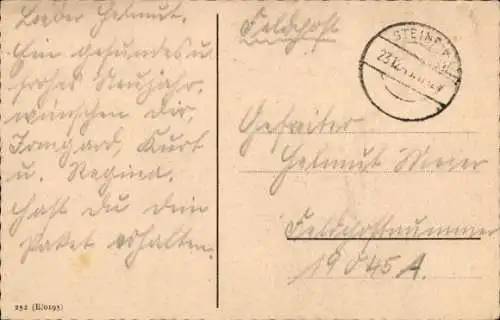 Lieber Helmut.
Ein gesundes u
frohes Neujahr,
wünschen dir,
Irmgard, Kurt
u. Regina.
Hast du dein
Paket erhalten.
252 (E/0195)
Feldpost
STEINF
23.12.
Gefreiter
Helmut
Feldpostnummer
19045 A.